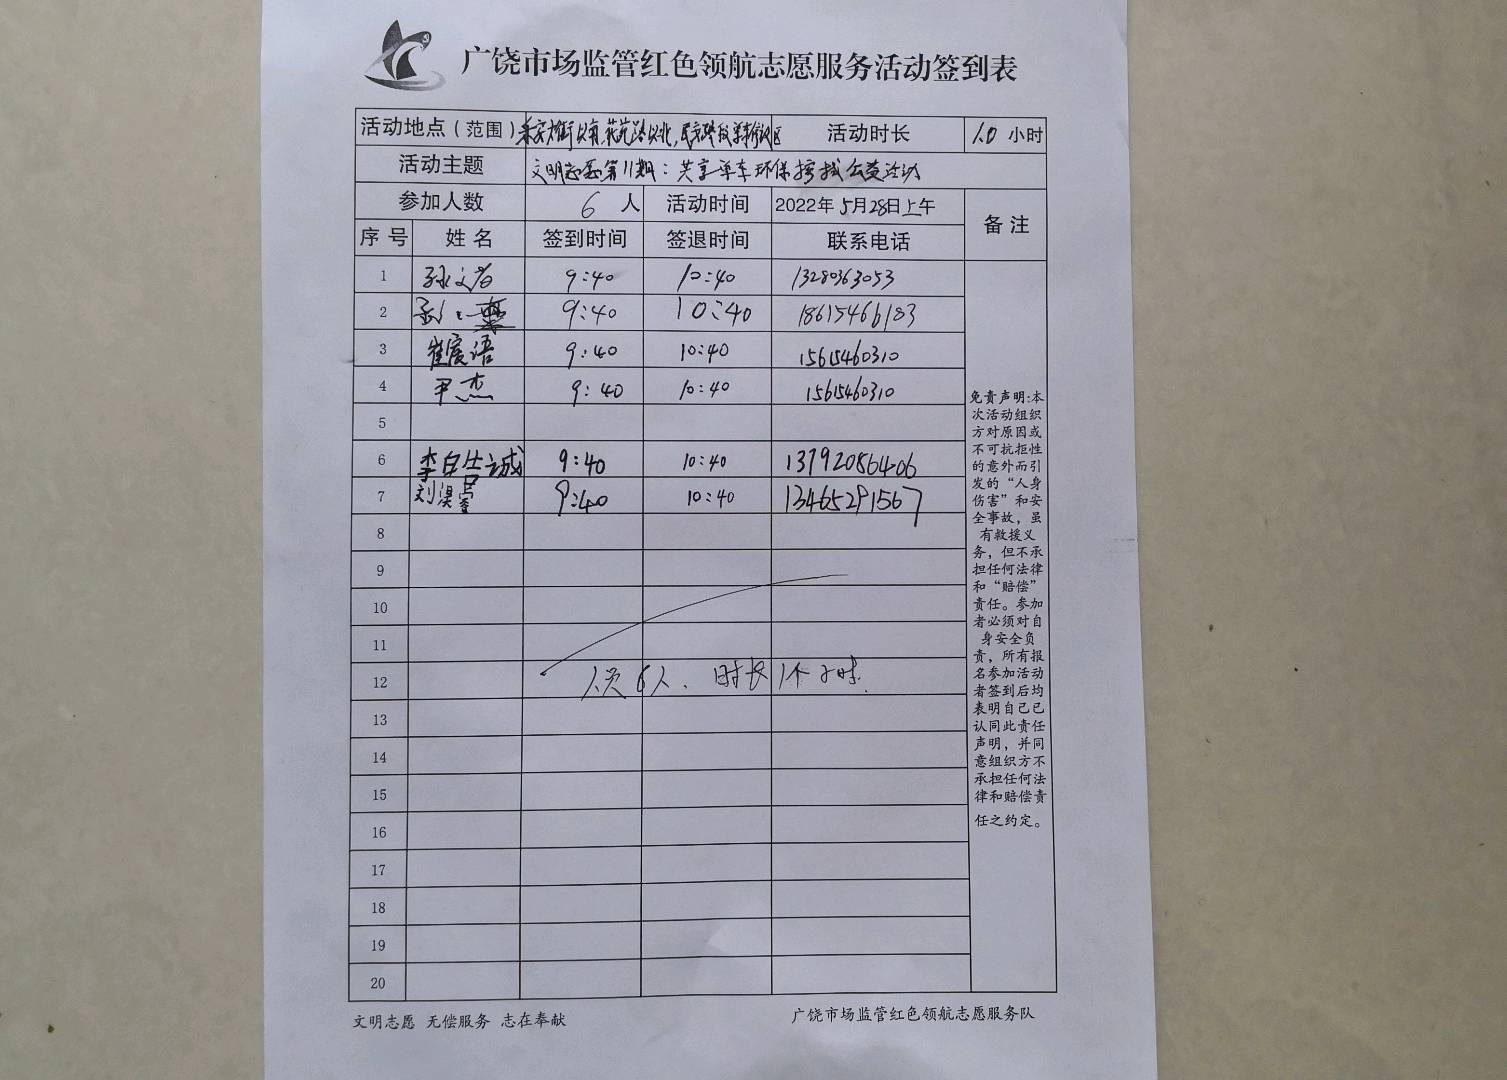 广饶市场监管红色领航志愿服务活动签到表
活动地点（范围） 以南，花苑路以北， 活动时长 1.0 小时
活动主题 文明志愿第11期：共享单车环保擦拭公益活动
参加人数 6 人 活动时间 2022年5月28日上午 备注
序号 姓名 签到时间 签退时间 联系电话
1 孙文 9:40 10:40 13280363053
2 9:40 10:40 18615466183
3 崔宸语 9:40 10:40 15615460310
4 尹杰 9:40 10:40 15615460310
5
6 李 诚 9:40 10:40 13792086406
7 刘淏 9:40 10:40 13465291567
8
9
10
11
12 人员6人、时长1个小时.
13
14
15
16
17
18
19
20
免责声明:本
次活动组织
方对原因或
不可抗拒性
的意外而引
发的“人身
伤害”和安
全事故，虽
有救援义
务，但不承
担任何法律
和“赔偿”
责任。参加
者必须对自
身安全负
责，所有报
名参加活动
者签到后均
表明自己已
认同此责任
声明，并同
意组织方不
承担任何法
律和赔偿责
任之约定。
文明志愿 无偿服务 志在奉献 广饶市场监管红色领航志愿服务队